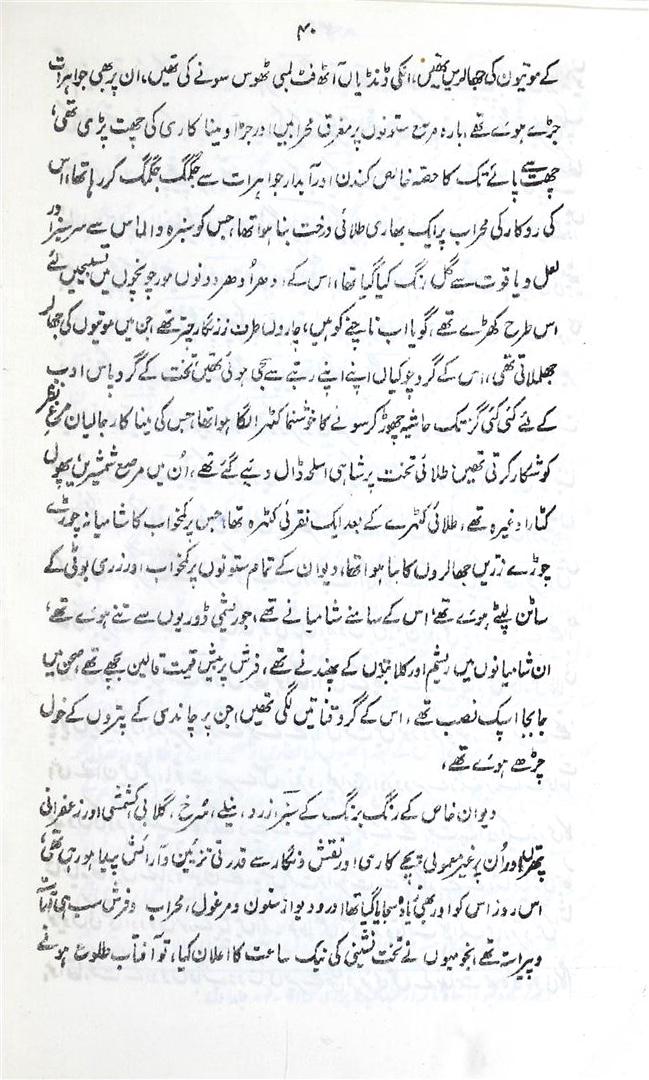 ۴۰
کے موتیوں کی جھالریں تھیں، انکی ڈنڈیاں آٹھ فٹ لمبی ٹھوس سونے کی تھیں، ان پر بھی جواہرات
جڑے ہوئے تھے، بارہ مرصع ستونوں پر مغرق محرابیں اور جڑاو مینا کاری کی چھت پڑی تھی،
چھت سے پائے تک کا حصہ خالص کندن اور آبدار جواہرات سے جگمگ جگمگ کر رہا تھا، اس
کی روکار کی محراب پر ایک بھاری طلائی درخت بنا ہوا تھا، جس کو سبزہ و الماس سے سرسبز اور
لعل و یاقوت سے گل رنگ کیا گیا تھا، اس کے ادھر اُدھر دونوں مور چونچوں میں تسبیحیں لئے
اس طرح کھڑے تھے، گویا اب ناچنے کو ہیں، چاروں طرف زرنگار چتر تھے جن میں موتیوں کی جھالر
جھلملاتی تھی، اس کے گرد چوکیاں اپنے اپنے رتبے سے سجی ہوئی تھیں تخت کے گرد پاس ادب
کے لئے کئی کئی گز تک حاشیہ چھوڑ کر سونے کا خوشنما کٹہرا لگا ہوا تھا، جس کی مینا کار جالیاں مرغ نظر
کو شکار کرتی تھیں، طلائی تخت پر شاہی اسلحہ ڈال دیئے گئے تھے، اُن میں مرصع شمشیریں، پھول
کٹار وغیرہ تھے، طلائی کٹہرے کے بعد ایک نقرئی کٹہرہ تھا، جس پر کمخواب کا شامیانہ چوڑے
چوڑے زریں جھالروں کا تنا ہوا تھا، دیوان کے تمام ستونوں پر کمخواب اور زری بوٹی کے
ساٹن لپٹے ہوئے تھے، اس کے سامنے شامیانے تھے، جو ریشمی ڈوریوں سے تنے ہوئے تھے،
ان شامیانوں میں ریشم اور کلابتوں کے پھندنے تھے، فرش پر بیش قیمت قالین بچھے تھے صحن میں
جابجا اسپک نصب تھے، اس کے گرد قناتیں لگی تھیں، جن پر چاندی کے پتروں کے خول
چڑھے ہوئے تھے،
دیوان خاص کے رنگ برنگ کے سبز، زرد، نیلے، سُرخ، گلابی، کشمشی اور زعفرانی
پتھروں اور اُن پر غیر معمولی پچے کاری اور نقش و نگار سے قدرتی تزئین و آرائش پیدا ہو رہی تھی،
اس روز اس کو اور بھی زیادہ سجایا گیا تھا، در و دیوار ستون و مرغول، محراب و فرش سب ہی آراستہ
و پیراستہ تھے، نجومیوں نے تخت نشینی کی نیک ساعت کا اعلان کیا، تو آفتاب طلوع ہونے